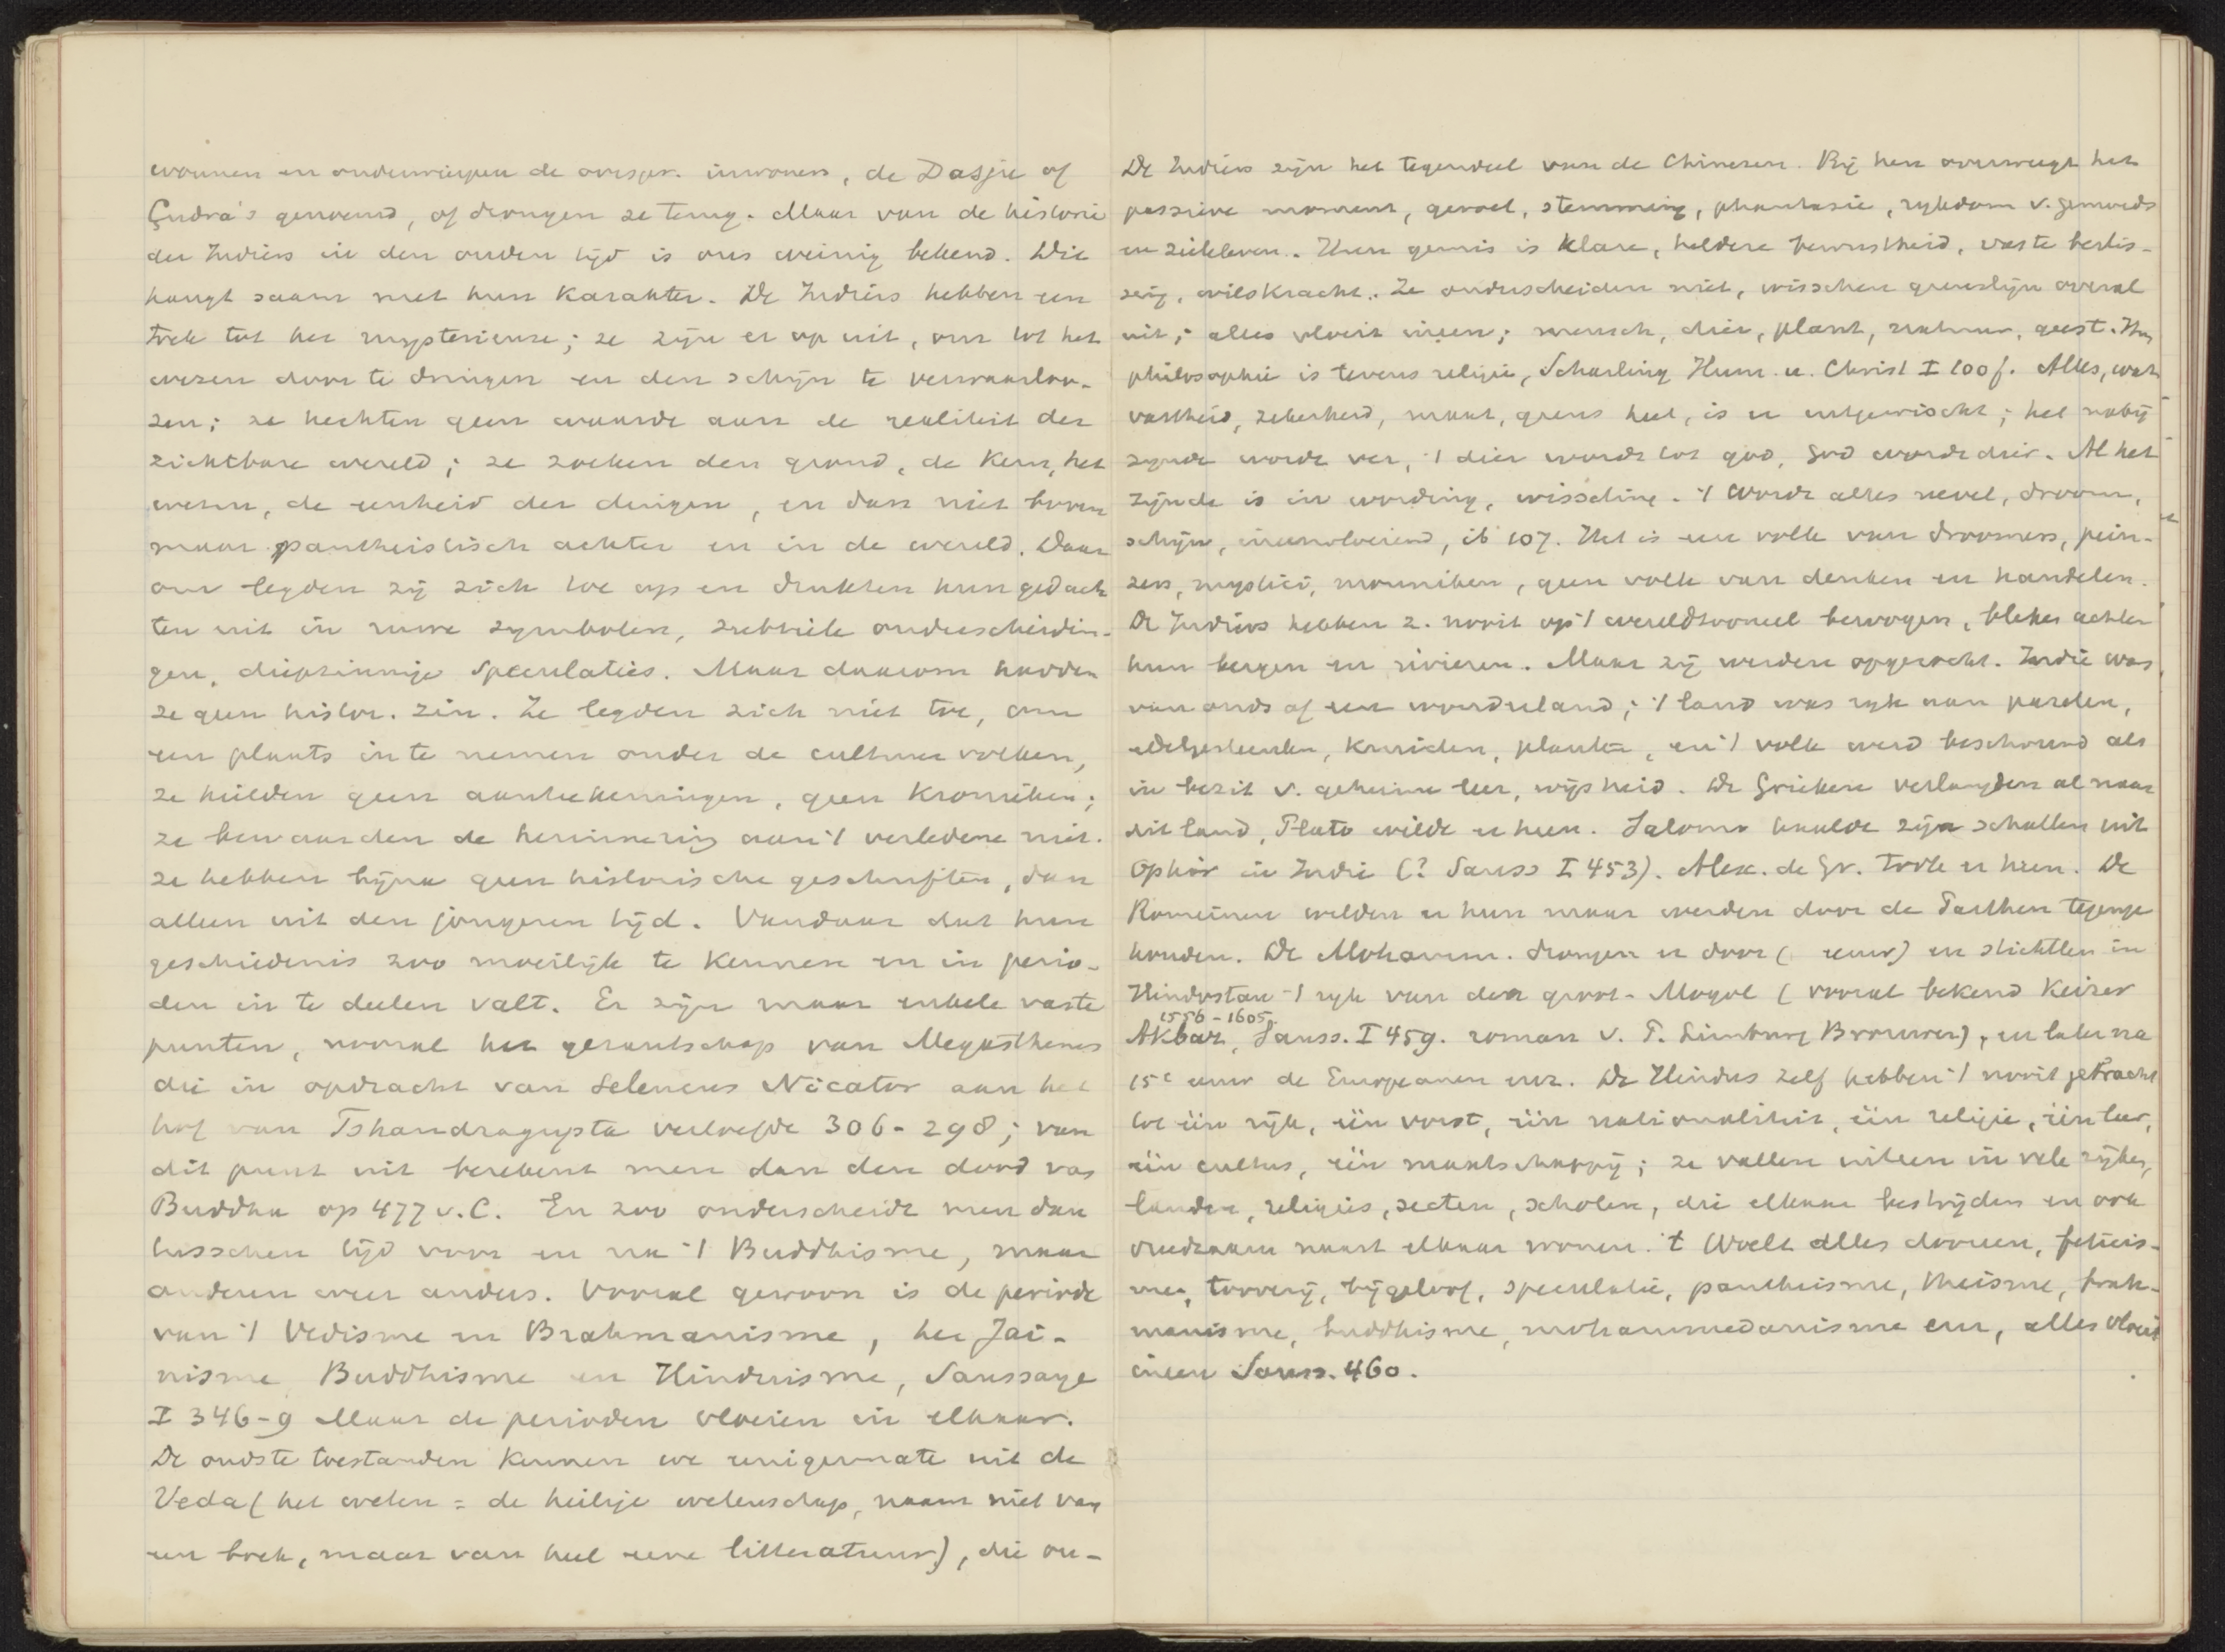 wonnen en onderwierpen de oorspr. inwoners, de Dasju of
Çudra's genoemd, of drongen ze terug. Maar van de historie
der Indiërs in den ouden tijd is ons weinig bekend. Dit
hangt saam met hun karakter. De Indiërs hebben een
trek tot het mysterieuse; ze zijn er op uit, om tot het
wezen door te dringen en den schijn te verwaarloo-
zen; ze hechten geen waarde aan de realiteit der
zichtbare wereld; ze zoeken den grond, de kern, het
wezen, de eenheid der dingen, en dan niet boven
maar pantheistisch achter en in de wereld. Daar
om legden zij zich toe op en drukten hun gedach
ten uit in ruwe symbolen, subtiele onderscheidin-
gen, diepzinnige speculaties. Maar daarom hadden
ze geen histor. zin. Ze legden zich niet toe, om
een plaats in te nemen onder de cultuurvolken,
ze hielden geen aanteekeningen, geen kronieken;
ze bewaarden de herinnering aan 't verledene niet.
ze hebben bijna geen historische geschriften, dan
alleen uit den jongeren tijd. Vandaar dat hun
geschiedenis zoo moeilijk te kennen en in perio-
den in te deelen valt. Er zijn maar enkele vaste
punten, vooral het gezantschap van Megasthenes
die in opdracht van Seleucus Nicator aan het
hof van Tshandragupta verloefde 306-298; van
dit punt uit berekent men dan den dood van
Buddha op 477 v.C. En zoo onderscheidt men dan
tusschen tijd voor en na 't Buddhisme, maar
anderen weer anders. Vooral gewoon is de periode
van 't Vedisme en Brahmanisme, het Jaï-
nisme Buddhisme en Hinduisme, Saussaye
I 346-9 Maar de perioden vloeien in elkaar.
De oudste toestanden kennen we eenigermate uit de
Veda (het weten = de heilige wetenschap, naam niet van
een boek, maar van heel eene litteratuur), die on-
De Indiërs zijn het tegendeel van de Chinezen. Bij hen overweegt het
passieve moment, gevoel, stemming, phantasie, rijkdom v. gemoeds
en zieleleven. Hun gemis is klare, heldere bewustheid, vaste beslis-
sing, wilskracht. Ze onderscheiden niet, wisschen grenslijn overal
uit; alles vloeit ineen; mensch, dier, plant, natuur, geest. Hun
philosophie is tevens religie, Scharling Hum. u. Christ I 100 f. Alles, wat
vastheid, zekerheid, maat, grens heet, is er uitgewischt; het nabij
zijnde wordt ver, 't dier wordt tot god, God wordt dier. Al het
zijnde is in wording, wisseling. 't Wordt alles nevel, droom,
schijn, ineenvloeiend, ib 107. Het is een volk van droomers, pein-
zers, mystici, monniken, geen volk van denken en handelen.
De Indiërs hebben z. nooit op 't wereldtooneel bewogen, bleken achter
hun bergen en rivieren. Maar zij werden opgezocht. Indië was
van ouds af een wonderland; 't land was rijk aan parelen,
edelgesteenten, kruiden, planten, en 't volk werd beschouwd als
in bezit v. geheime leer, wijsheid. De Grieken verlangden al naar
dit land, Plato wilde er heen. Salomo haalde zijn schatten uit
Ophir in Indië (? Sauss I 453). Alex. de Gr. trok er heen. De
Romeinen wilden er heen maar werden door de Parthen tegenge
houden. De Mohamm. drongen er door ( eeuw) en stichtten in
Hindostan 't rijk van den groot-Mogol (vooral bekend keizer
1556-1605.
Akbar, Sauss. I 459. roman v. P. Limburg Brouwer), en later na
15e eeuw de Europeanen enz. De Hindus zelf hebben 't nooit gebracht
tot één rijk, één vorst, één nationaliteit, één religie, één leer,
één cultus, één maatschappij; ze vallen uiteen in vele rijken,
landen, religies, secten, scholen, die elkaar bestrijden en ook
vreedzaam naast elkaar wonen. 't Woelt alles dooreen, feticis-
me, toovery, bijgeloof, speculatie, pantheisme, theisme, brah-
manisme, buddhisme, mohammedanisme enz, alles vloeit
ineen Sauss. 460.